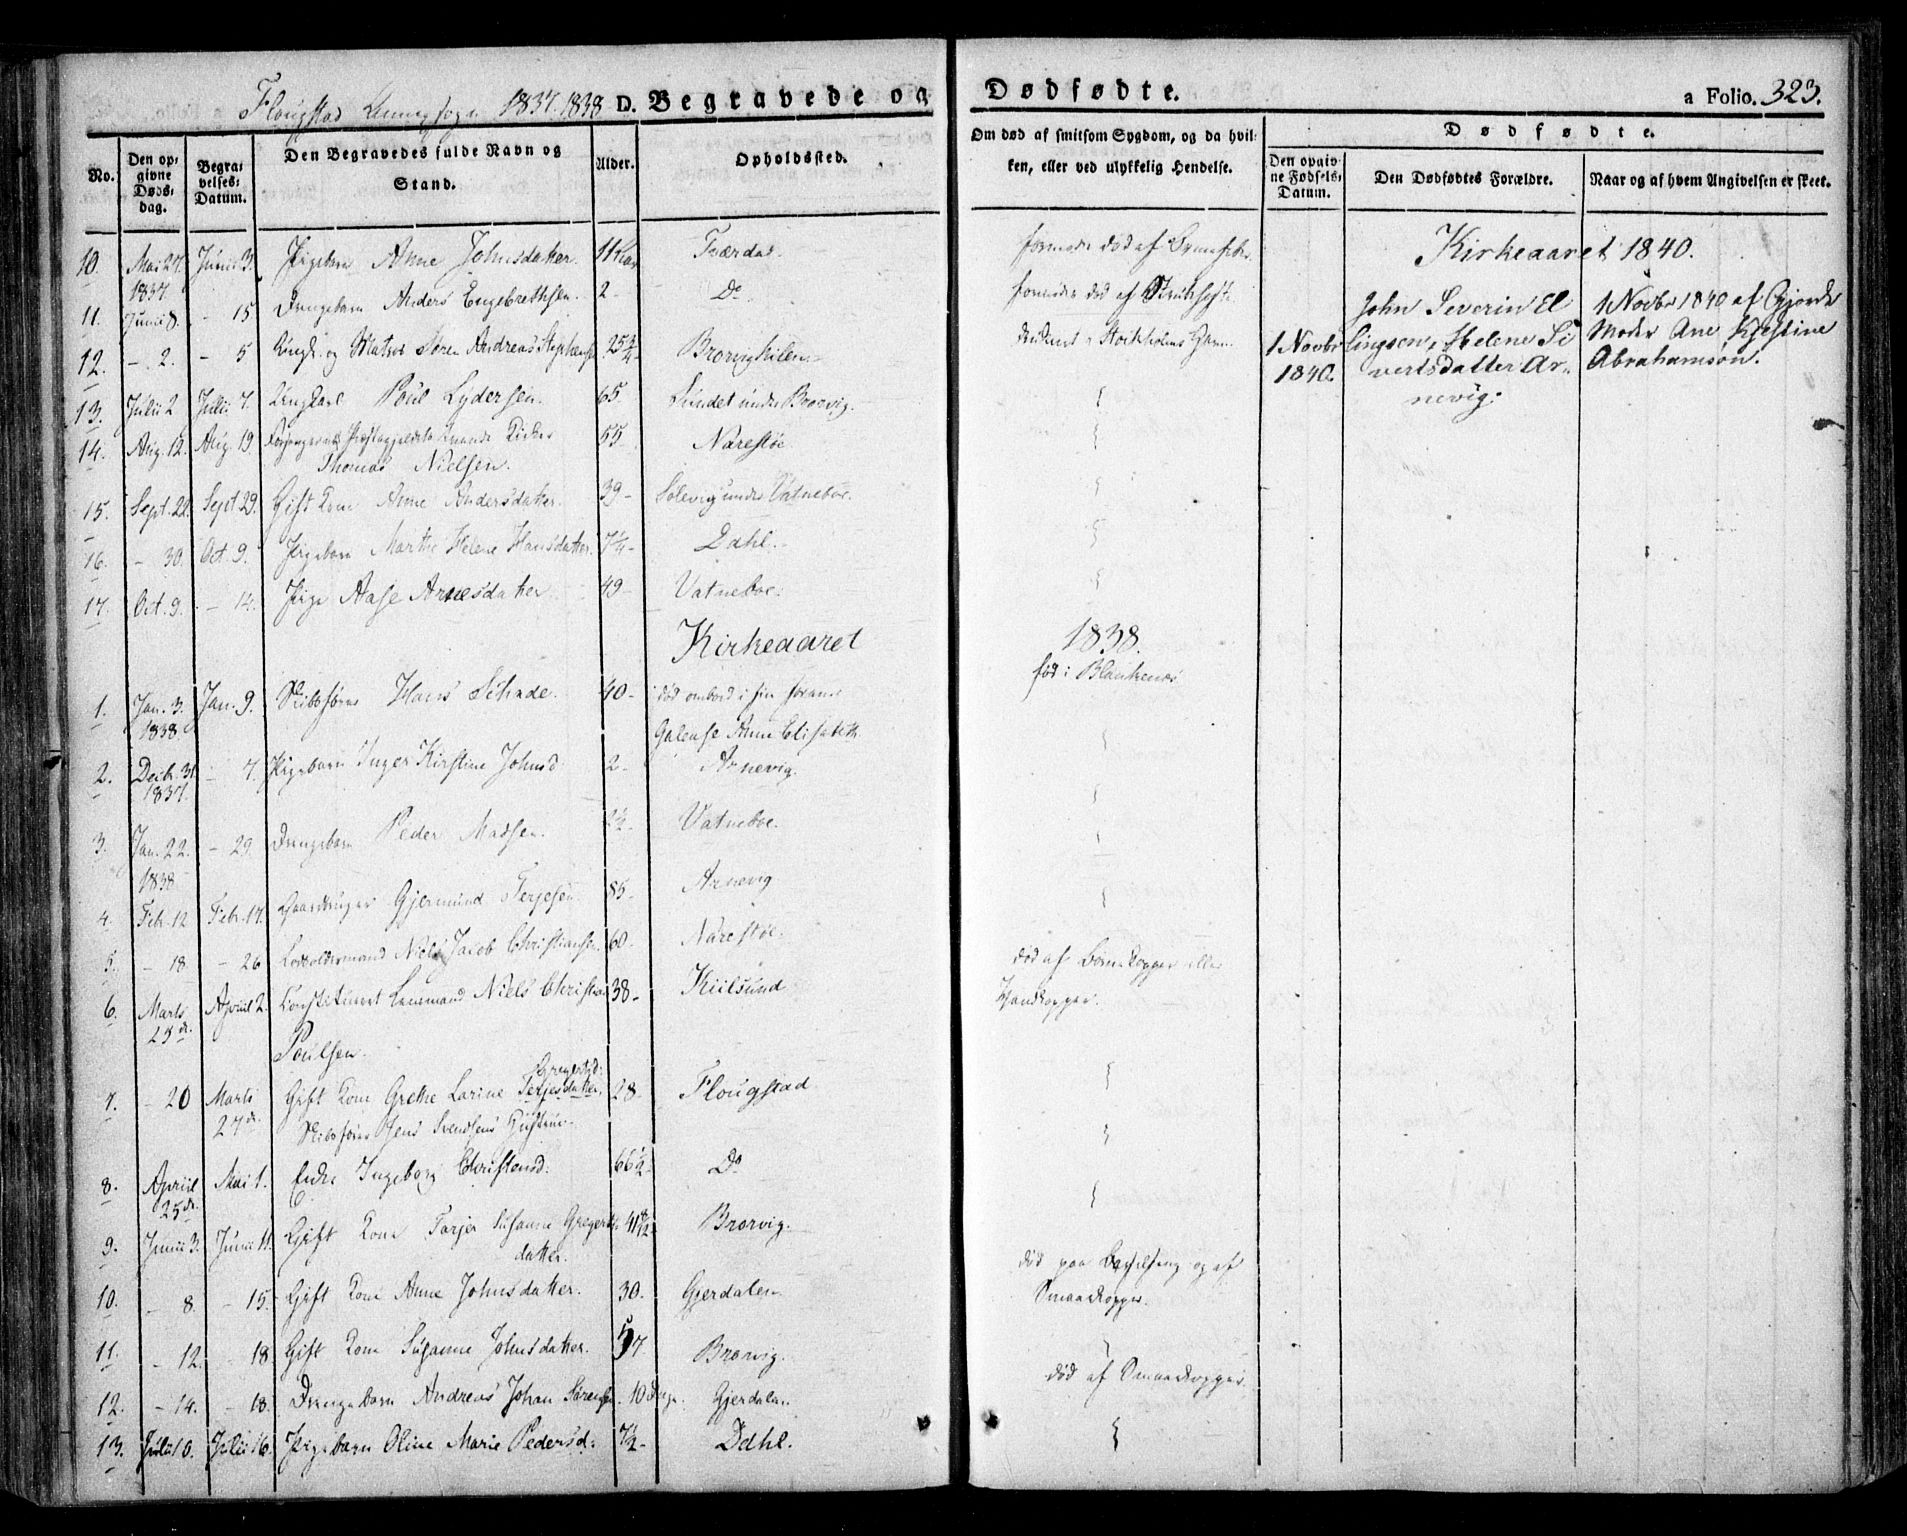 Flougstad Annexsogn 1837. 1838. D. Begravede og Dødfødte. a Folio. 323.
No. Den opgivne Døds-dag. Begravelses-Datum. Den Begravedes fulde Navn og Stand. Alder. Opholdssted. Om død af smitsom Sygdom, og da hvilken, eller ved ulykkelig Hendelse.
Dødfødte.
Den opgivne Fødsels-Datum. Den Dødfødtes Forældre. Naar og af hvem Angivelsen er skeet.
10. Mai 27. 1837. Junii 3. Pigebarn Anne Johnsdatter. 11 Tværdal. formodes død af
Kirkeaaret 1840.
11. Junii 8. - 15 Drengebarn Anders Engebrethsen. 2 - Do formodes død af
12. - 2. - 5 Ungk. og Matros Søren Andreas Stephens. 25 3/4 - Brorvigkilen druknet i Stockholms Havn
13. Julii 2 Julii 7. Ungkarl Poul Lydersen. 65 Sundet under Brorvig.
14. Aug. 12. Aug. 19. Thomas Nielsen. 55 - Narestøe
15. Sept. 22. Sept 29. Gift Kone Anne Andersdatter. 39 - Solevig under Vatneboe.
16. - 30. Oct. 9. Pigebarn Marthe Helene Hansdatter. 7 1/4 - Dahl.
17. Oct. 9. - 14. Pige Aase Arnesdatter 49 - Vatneboe.
1 Novbr 1840. John Severin Ellingsen, Helene Sivertsdatter Arnevig. 1 Novbr 1840 af Gjorde Moder Ane Kjestine Abrahamson.
Kirkeaaret 1838.
1. Jan. 3. 1838. Jan. 9. Skibsfører Hans Schade. 40 - død ombord i sin
Galease Anne Elisabeth
født i Blankenes
2. Decbr. 31. 1837. - 7. Pigebarn Inger Kirstine Johnsd. 2 - Arnevig.
3. Jan. 22. 1838 - 29. Drengebarn Peder Madsen. 2 1/2 - Vatneboe.
4. Feb. 12 Febr. 17. Gaardbruger Gjermund Terjesen. 85 - Arnevig
5. - 18. - 26 Niels Jacob Christiansen. 60 - Narestøe.
6. Marts 25de. Apriil 2. Constitueret Lensmand Niels Christian 38 - Kiilsund død af Børnekopper eller
Poulsen. Vandkopper.
7. - 20 Marts 27de. Gift Kone Grethe Larine Terjesdatter. 28 - Flougstad
Skibsfører Jens Svendsens Hustrue.
8. Apriil 25de. Mai 1. Enke Ingeborg Christensd. 66 1/2 - Do
9. Junii 3. Junii 11. Gift Kone Tarjer Susanne Greger 41 Brorvig.
datter.
10. - 8. - 15. Gift Kone Anne Johnsdatter. 30. Gjerdalen død paa Barselseng og af
Smaakopper.
11. - 12. - 18 Gift Kone Susanne Johnsdatter. 57 Brorvig.
12. - 14. - 18. Drengebarn Andreas Johan Sørensen. 10 Dage. Gjerdalen død af Smaakopper.
13. Julii 10. Julii 16. Pigebarn Oline Marie Pedersd: 7 1/2 - Dahl.